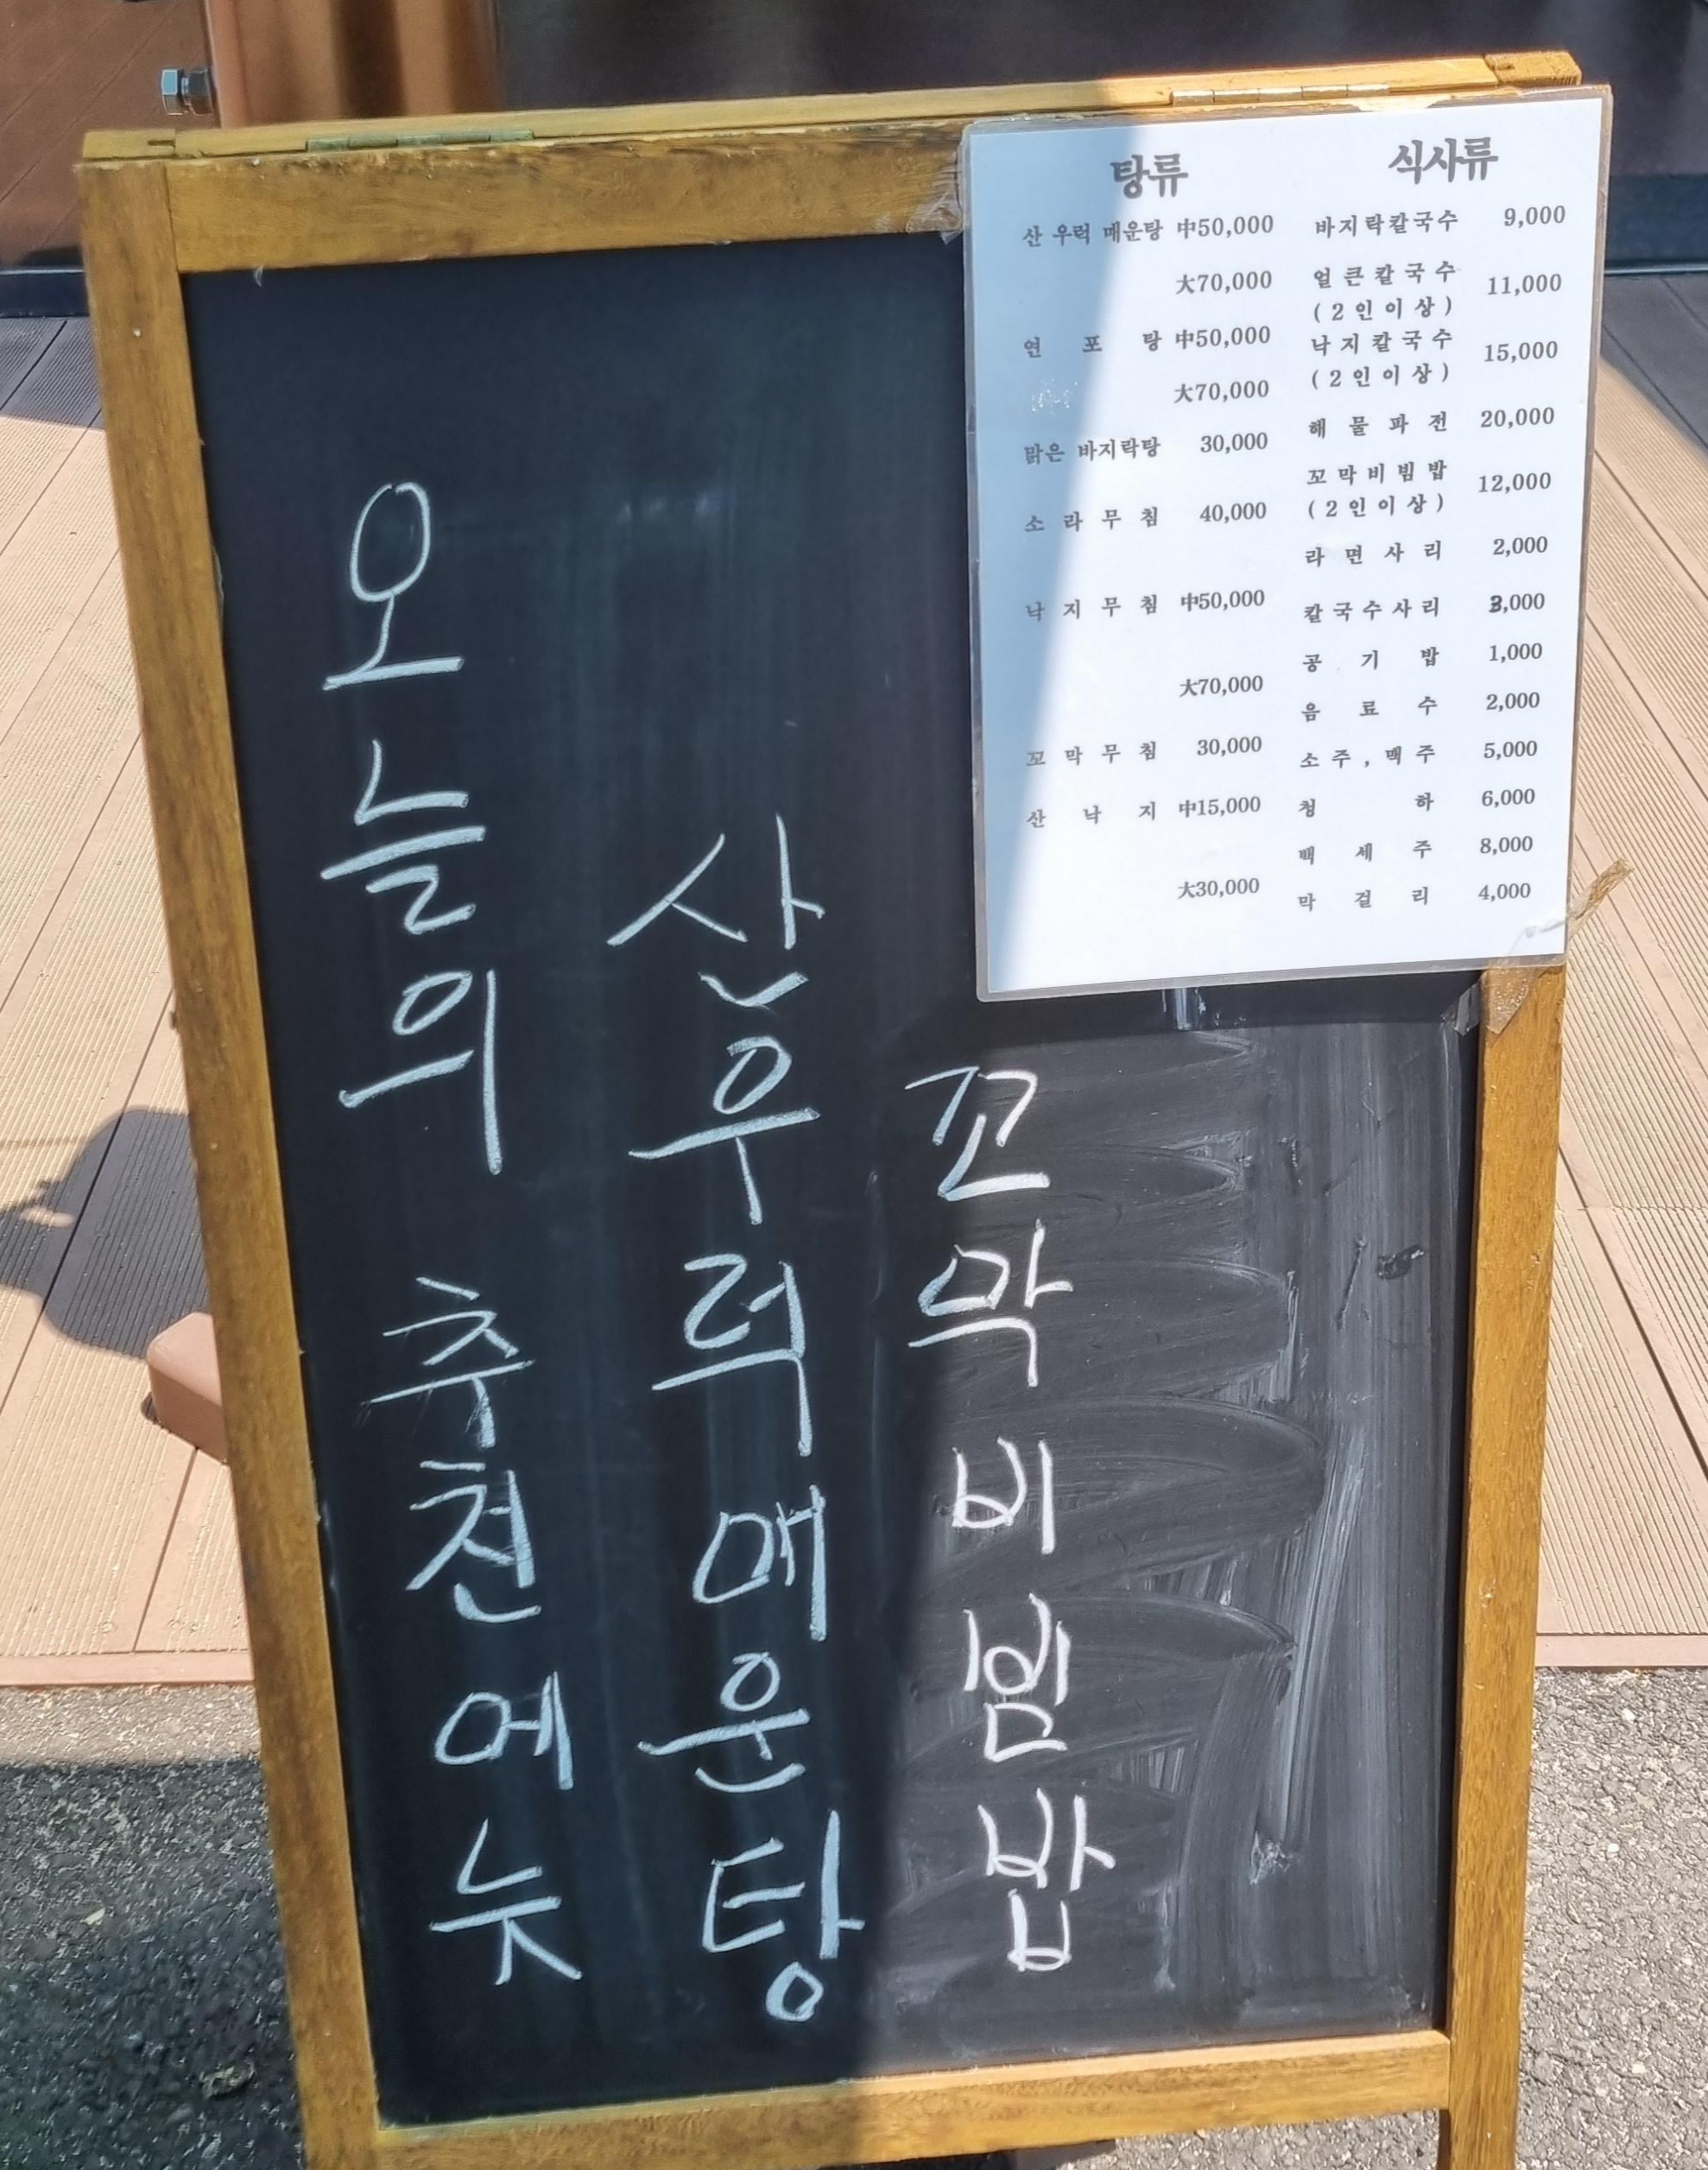 오늘의 추천에뉴
산우럭매운탕
꼬막비빔밥
탕류
산 우럭 매운탕 中50,000
大70,000
연 포 탕 中50,000
大70,000
맑은 바지락탕 30,000
소 라 무 침 40,000
낙 지 무 침 中50,000
大70,000
꼬 막 무 침 30,000
산 낙 지 中15,000
大30,000
식사류
바지락칼국수 9,000
얼큰칼국수 11,000
(2인이상)
낙지칼국수 15,000
(2인이상)
해 물 파 전 20,000
꼬막비빔밥 12,000
(2인이상)
라 면 사 리 2,000
칼국수사리 3,000
공 기 밥 1,000
음 료 수 2,000
소주,맥주 5,000
청 하 6,000
백 세 주 8,000
막 걸 리 4,000